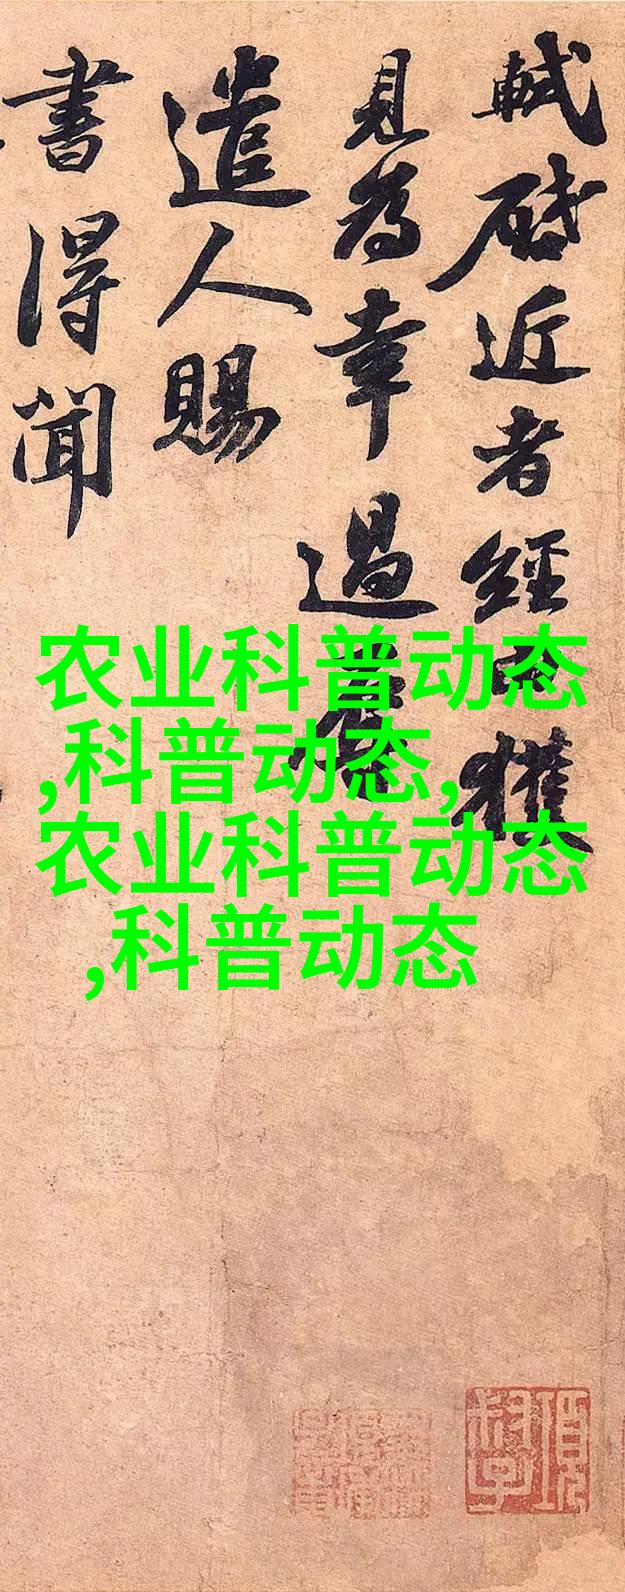 軾啟近者經由獲
見為幸過辱
遣人賜
書得聞
农业科普动态
,科普动态,
农业科普动态
,科普动态